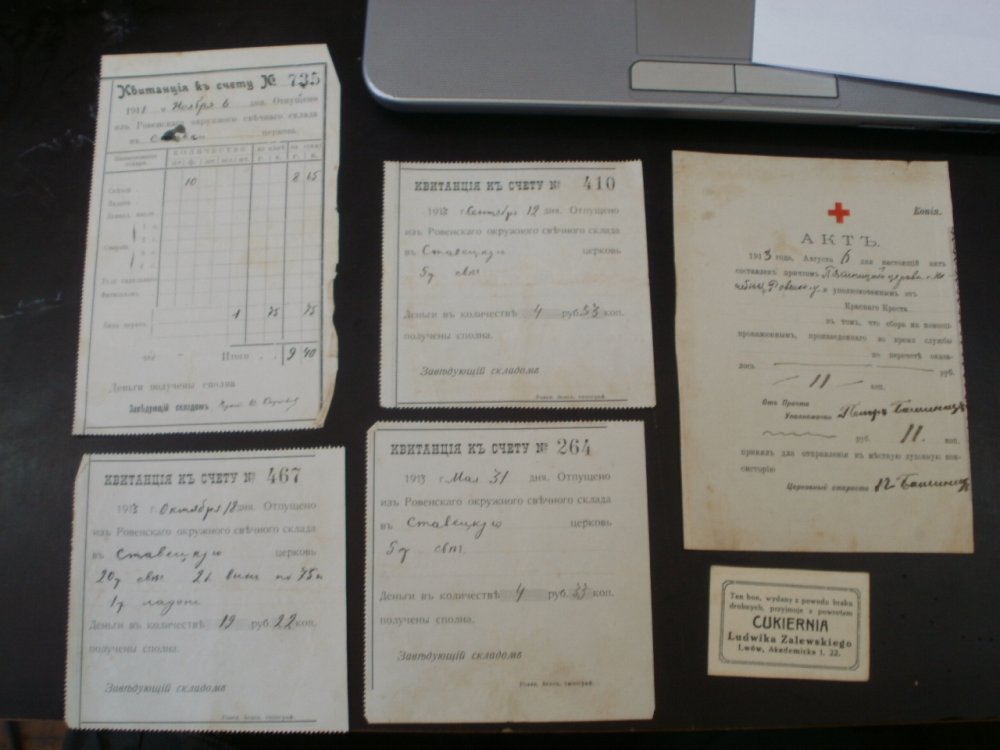 Квитанція къ счету № 735
1911 г. Ноября 6 дня. Отпущено
изъ Ровенскаго окружного свѣчного склада
въ церковь.
Наименованіе товара. КОЛИЧЕСТВО
Р. К. Р. К.
Свѣчи 10 8 65
Ладана
1 75 75
Итого . . 9 40
Деньги получены сполна
Завѣдующій складомъ
КВИТАНЦІЯ КЪ СЧЕТУ № 410
1913 г. Сентября 12 дня. Отпущено
изъ Ровенскаго окружного свѣчного склада
въ Ставецкую церковь
5 ф свѣч.
Деньги въ количествѣ 4 руб. 33 коп.
получены сполна.
Завѣдующій складомъ
КВИТАНЦІЯ КЪ СЧЕТУ № 467
1913 г. Октября 18 дня. Отпущено
изъ Ровенскаго окружного свѣчного склада
въ Ставецкую церковь
20 ф свѣч. 2 б. вина по 75 к
1 ф ладону
Деньги въ количествѣ 19 руб. 22 коп.
получены сполна.
Завѣдующій складомъ
КВИТАНЦІЯ КЪ СЧЕТУ № 264
1913 г. Мая 31 дня. Отпущено
изъ Ровенскаго окружного свѣчного склада
въ Ставецкую церковь
5 ф свѣч.
Деньги въ количествѣ 4 руб. 33 коп.
получены сполна.
Завѣдующій складомъ
Копія.
АКТЪ.
1913 года, Августа 6 дня настоящій актъ
составленъ причтомъ церкви
и уполномоченнымъ отъ
Краснаго Креста
въ томъ, что сбора на помощь
прокаженнымъ, произведеннаго во время службы
по перечетѣ оказа-
лось руб.
11 коп.
Отъ Причта
Уполномоченъ
руб. 11. коп.
принялъ для отправленія въ мѣстную духовную кон-
систорію
Церковный староста
Ten bon, wydany z powodu braku
drobnych, przyjmuje z powrotem
CUKIERNIA
Ludwika Zalewskiego
Lwów, Akademicka l. 22.